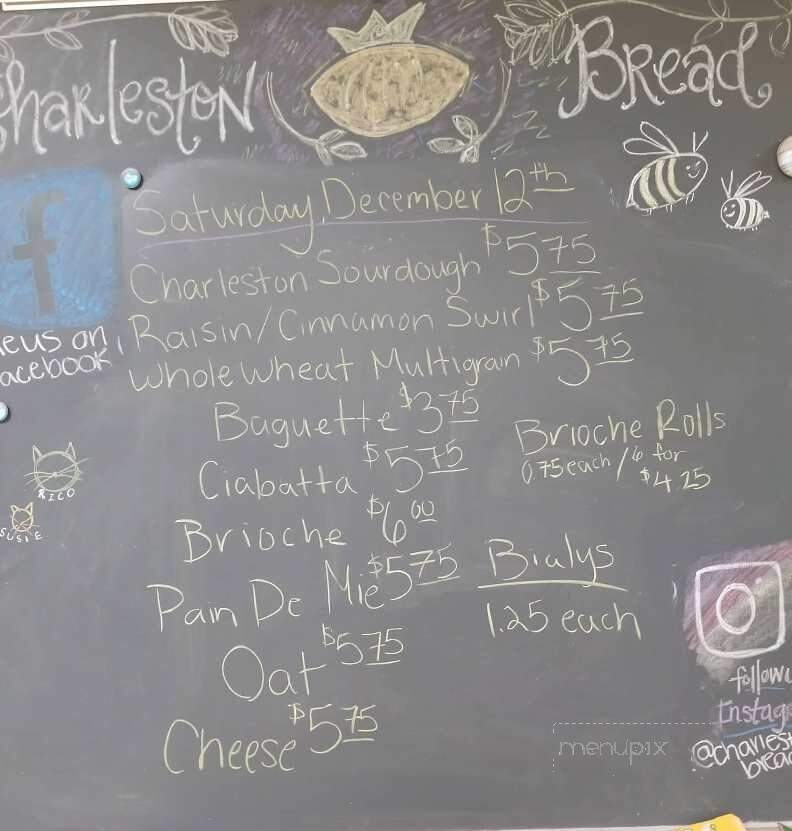 Charleston Bread
Saturday, December 12th
Charleston Sourdough $5.75
Raisin/Cinnamon Swirl $5.75
Whole Wheat Multigrain $5.75
Baguette $3.75
Ciabatta $5.75
Brioche $6.00
Pain De Mie $5.75
Oat $5.75
Cheese $5.75
Brioche Rolls
0.75 each / 6 for
$4.25
Bialys
1.25 each
f
us on
acebook
RICO
SUSIE
follow
Instag
@charles
brea
menupix